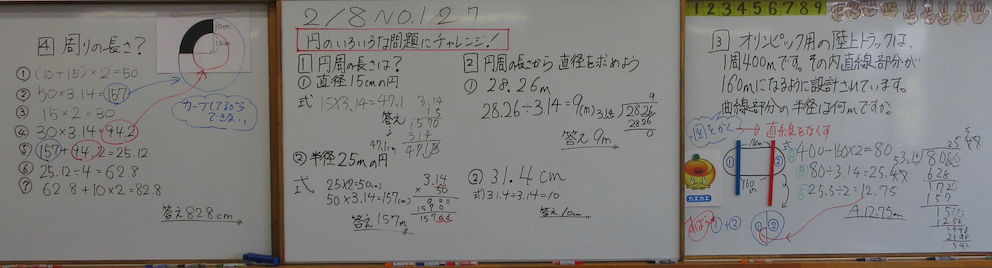 4 周りの長さ?
10cm
15cm
① (10+15)×2=50
② 50×3.14=157
③ 15×2=30
④ 30×3.14=94.2
⑤ 157+94.2=25.12
⑥ 25.12÷4=62.8
⑦ 62.8+10×2=82.8
答え 82.8cm
カーブしてるから
できない
2/8 NO.127
円のいろいろな問題にチャレンジ!
1 円周の長さは?
① 直径15cmの円
式 15×3.14=47.1
答え
47.1cm
3.14
15
1570
314
47.10
② 半径25mの円
式 25×2=50(m)
50×3.14=157(m)
答え 157m
3.14
×50
000
1570
157.00
2 円周の長さから直径を求めよう
① 28.26m
28.26÷3.14=9(m)
答え 9m
9
28.26
2826
0
② 31.4cm
式) 31.4÷3.14=10
答え 10cm
1 2 3 4 5 6 7 8 9 10
3 オリンピック用の陸上トラックは、
1周400mです。その内直線部分が
160mになるように設計されています。
曲線部分の半径は何mですか。
図をかく→直線をなくす
カエカエ
160m
① ②
①+②
式 400-160×2=80
80÷3.14=25.48
25.5÷2=12.75
A.12.75m
25.48
628
157